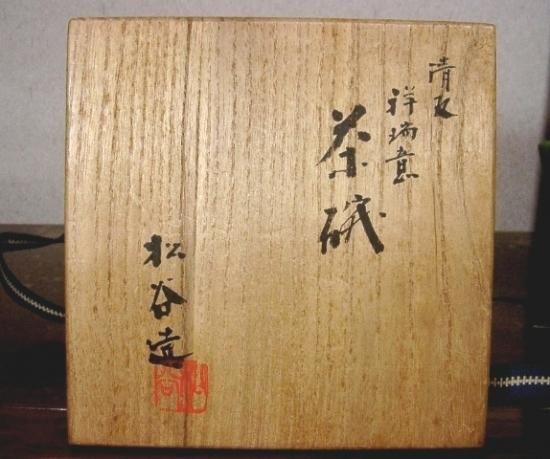 清水
祥瑞意
茶碗
松谷造